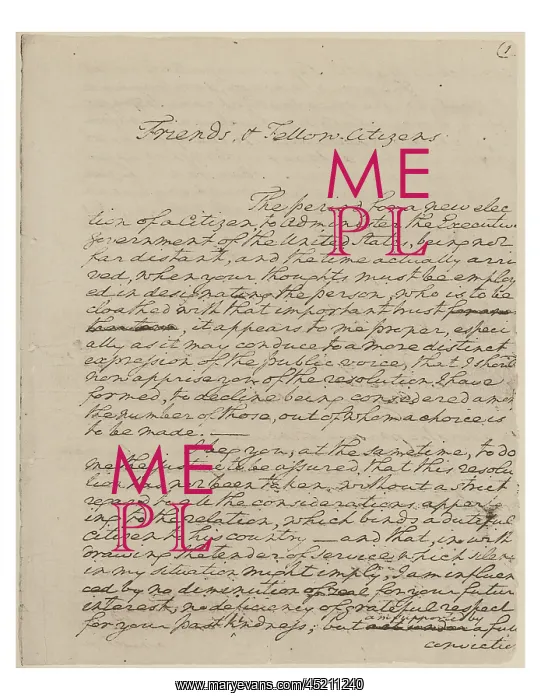 (1
Friends, & Fellow-Citizens
The period for a new elec
tion of a Citizen, to Administer the Executive
Government of the United States, being not
far distant, and the time actually arri
ved, when your thoughts must be employ
ed in designating the person, who is to be
cloathed with that important trust
, it appears to me proper, especi
ally as it may conduce to a more distinct
expression of the public voice, that I should
now apprise you of the resolution I have
formed, to decline being considered among
the number of those, out of whom a choice is
to be made.
I beg you, at the sametime, to do
me the justice to be assured, that this resolu
tion has not been taken, without a strict
regard to all the considerations apper
in to the relation, which binds a dutiful
Citizen to his country — and that, in with
drawing the tender of service which silence
in my situation might imply, I am influen
ced by no diminution of zeal for your future
interest, no deficiency of grateful respect
for your past kindness; but am supported by a full
conviction
ME
PL
ME
PL
www.maryevans.com/45211240